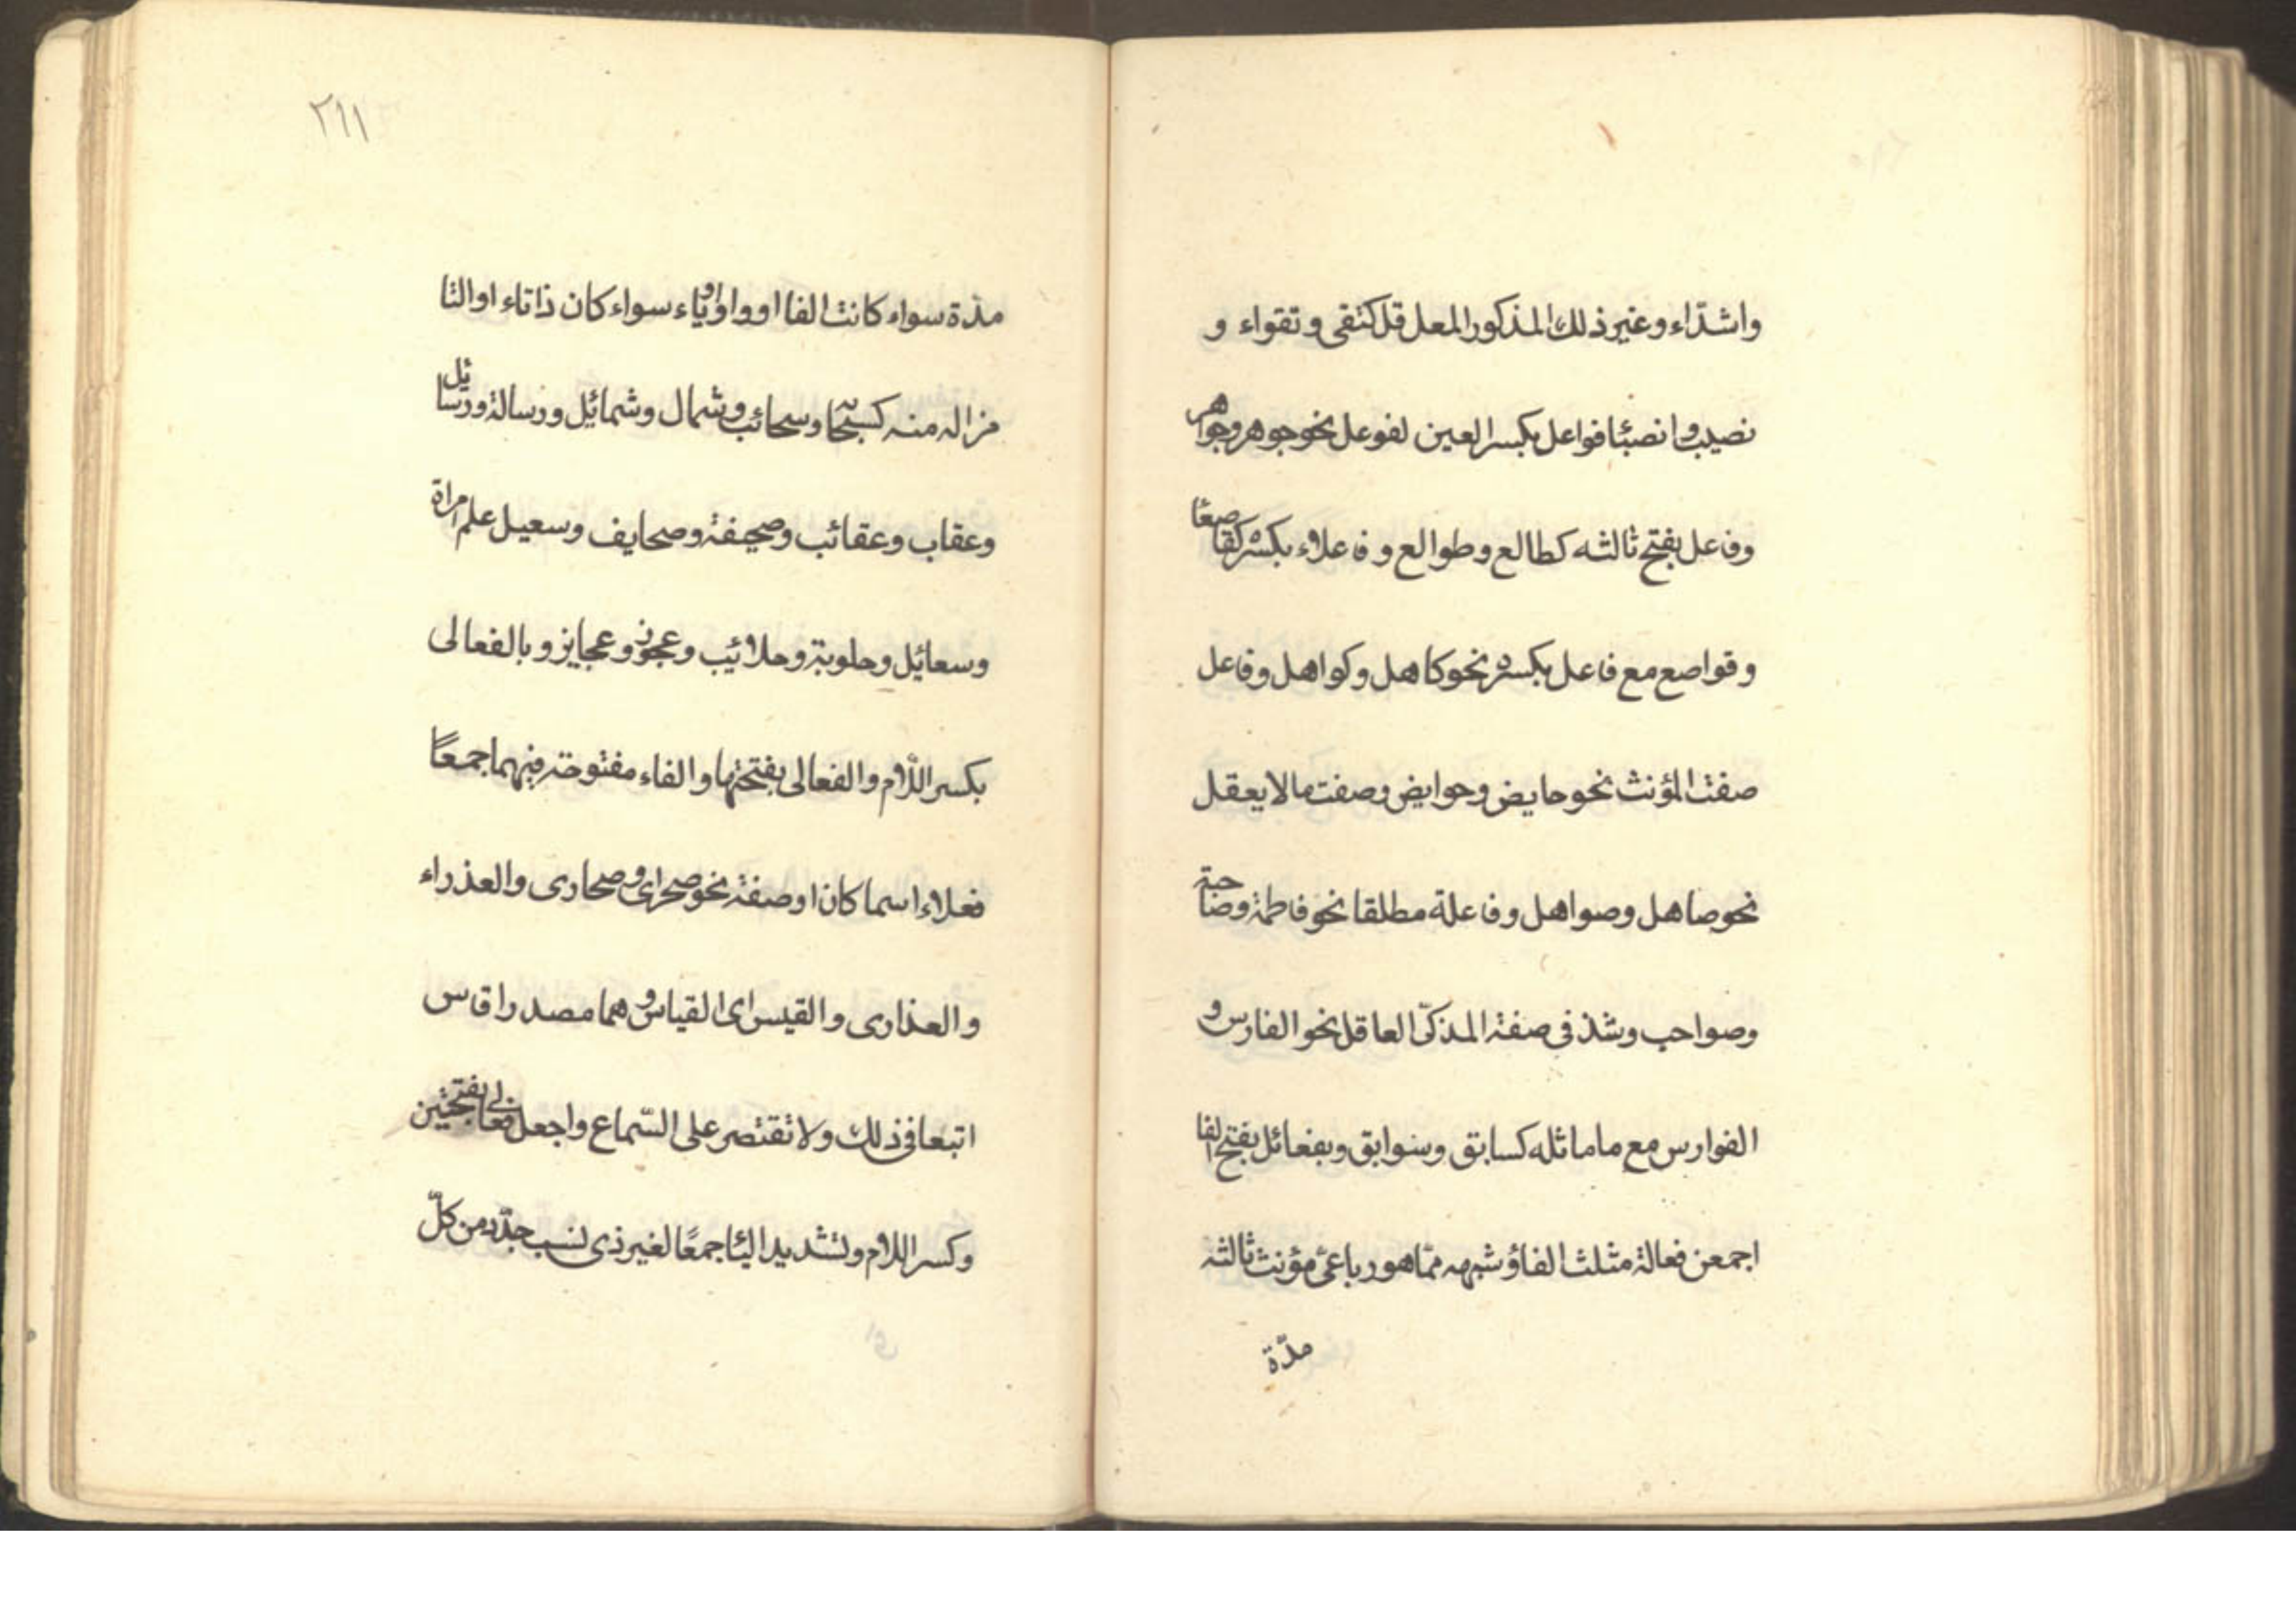 واشدّاء وغير ذلك المذكور المعل قل كتقى وتقواء و
نصيب وانصبئا فواعل بكسر العين لفوعل نحو جوهر وجواهر
وفاعل بفتح ثالثه كطالع وطوالع وفاعلاء بكسره كقاصعًا
وقواصع مع فاعل بكسره نحو كاهل وكواهل وفاعل
صفت المؤنث نحو حايض وحوايض وصفت مالا يعقل
نحو صاهل وصواهل وفاعلة مطلقا نحو فاطمة وصاحبة
وصواحب وشذ فى صفة المذكّى العاقل نحو الفارس و
الفوارس مع ما ماثله كسابق وسوابق وبفعائل بفتح الفا
اجمعن فعالة مثلث الفاؤ شبهه ممّا هو رباعىّ مؤنث ثالثه
مدّة
٢٦١
مدّة سواء كانت الفا او واو او ياء سواء كان ذا تاء او التا
مزاله منه كسحّابة وسحائب وشمال وشمائل ورسالة ورسائل
وعقاب وعقائب وصحيفة وصحايف وسعيل علم امراة
وسعائل وحلوبة وحلائيب وعجوز وعجايز وبالفعالى
بكسر اللّام والفعالى بفتحها والفاء مفتوحة فيهما جمعًا
فعلاء اسما كان او صفة نحو صحراى وصحارى والعذراء
والعذارى والقيس اى القياس وهما مصدرا قاس
اتبعا فى ذلك ولا تقتصر على السّماع واجعل فعالى بفتحتين
وكسر اللام وتشديد اليئا جمعًا لغير ذى نسب جدّد من كلّ